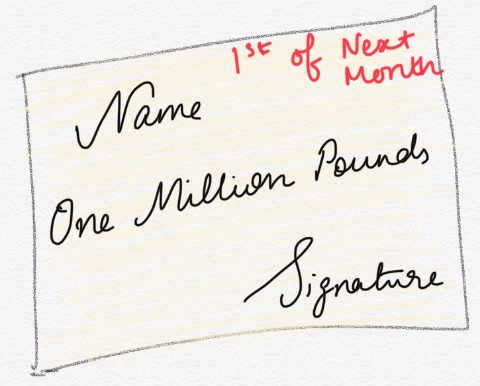 1st of Next
Month
Name
One Million Pounds
Signature